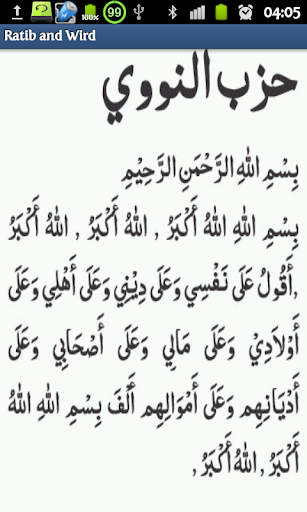 100% 99 04:05
Ratib and Wird
حزب النووي
بِسْمِ اللهِ الرَّحْمَنِ الرَّحِيْمِ
بِسْمِ اللهِ اللهُ أَكْبَرُ , اللهُ أَكْبَرُ , اللهُ أَكْبَرُ
,أَقُولُ عَلَى نَفْسِي وَعَلَى دِيْنِي وَعَلَى أَهْلِي وَعَلَى
أَوْلَادِيْ وَعَلَى مَالِي وَعَلَى أَصْحَابِي وَعَلَى
أَدْيَانِهِم وَعَلَى أَمْوَالِهِم أَلْفَ بِسْمِ اللهِ اللهُ
أَكْبَرُ , اللهُ أَكْبَرُ ,